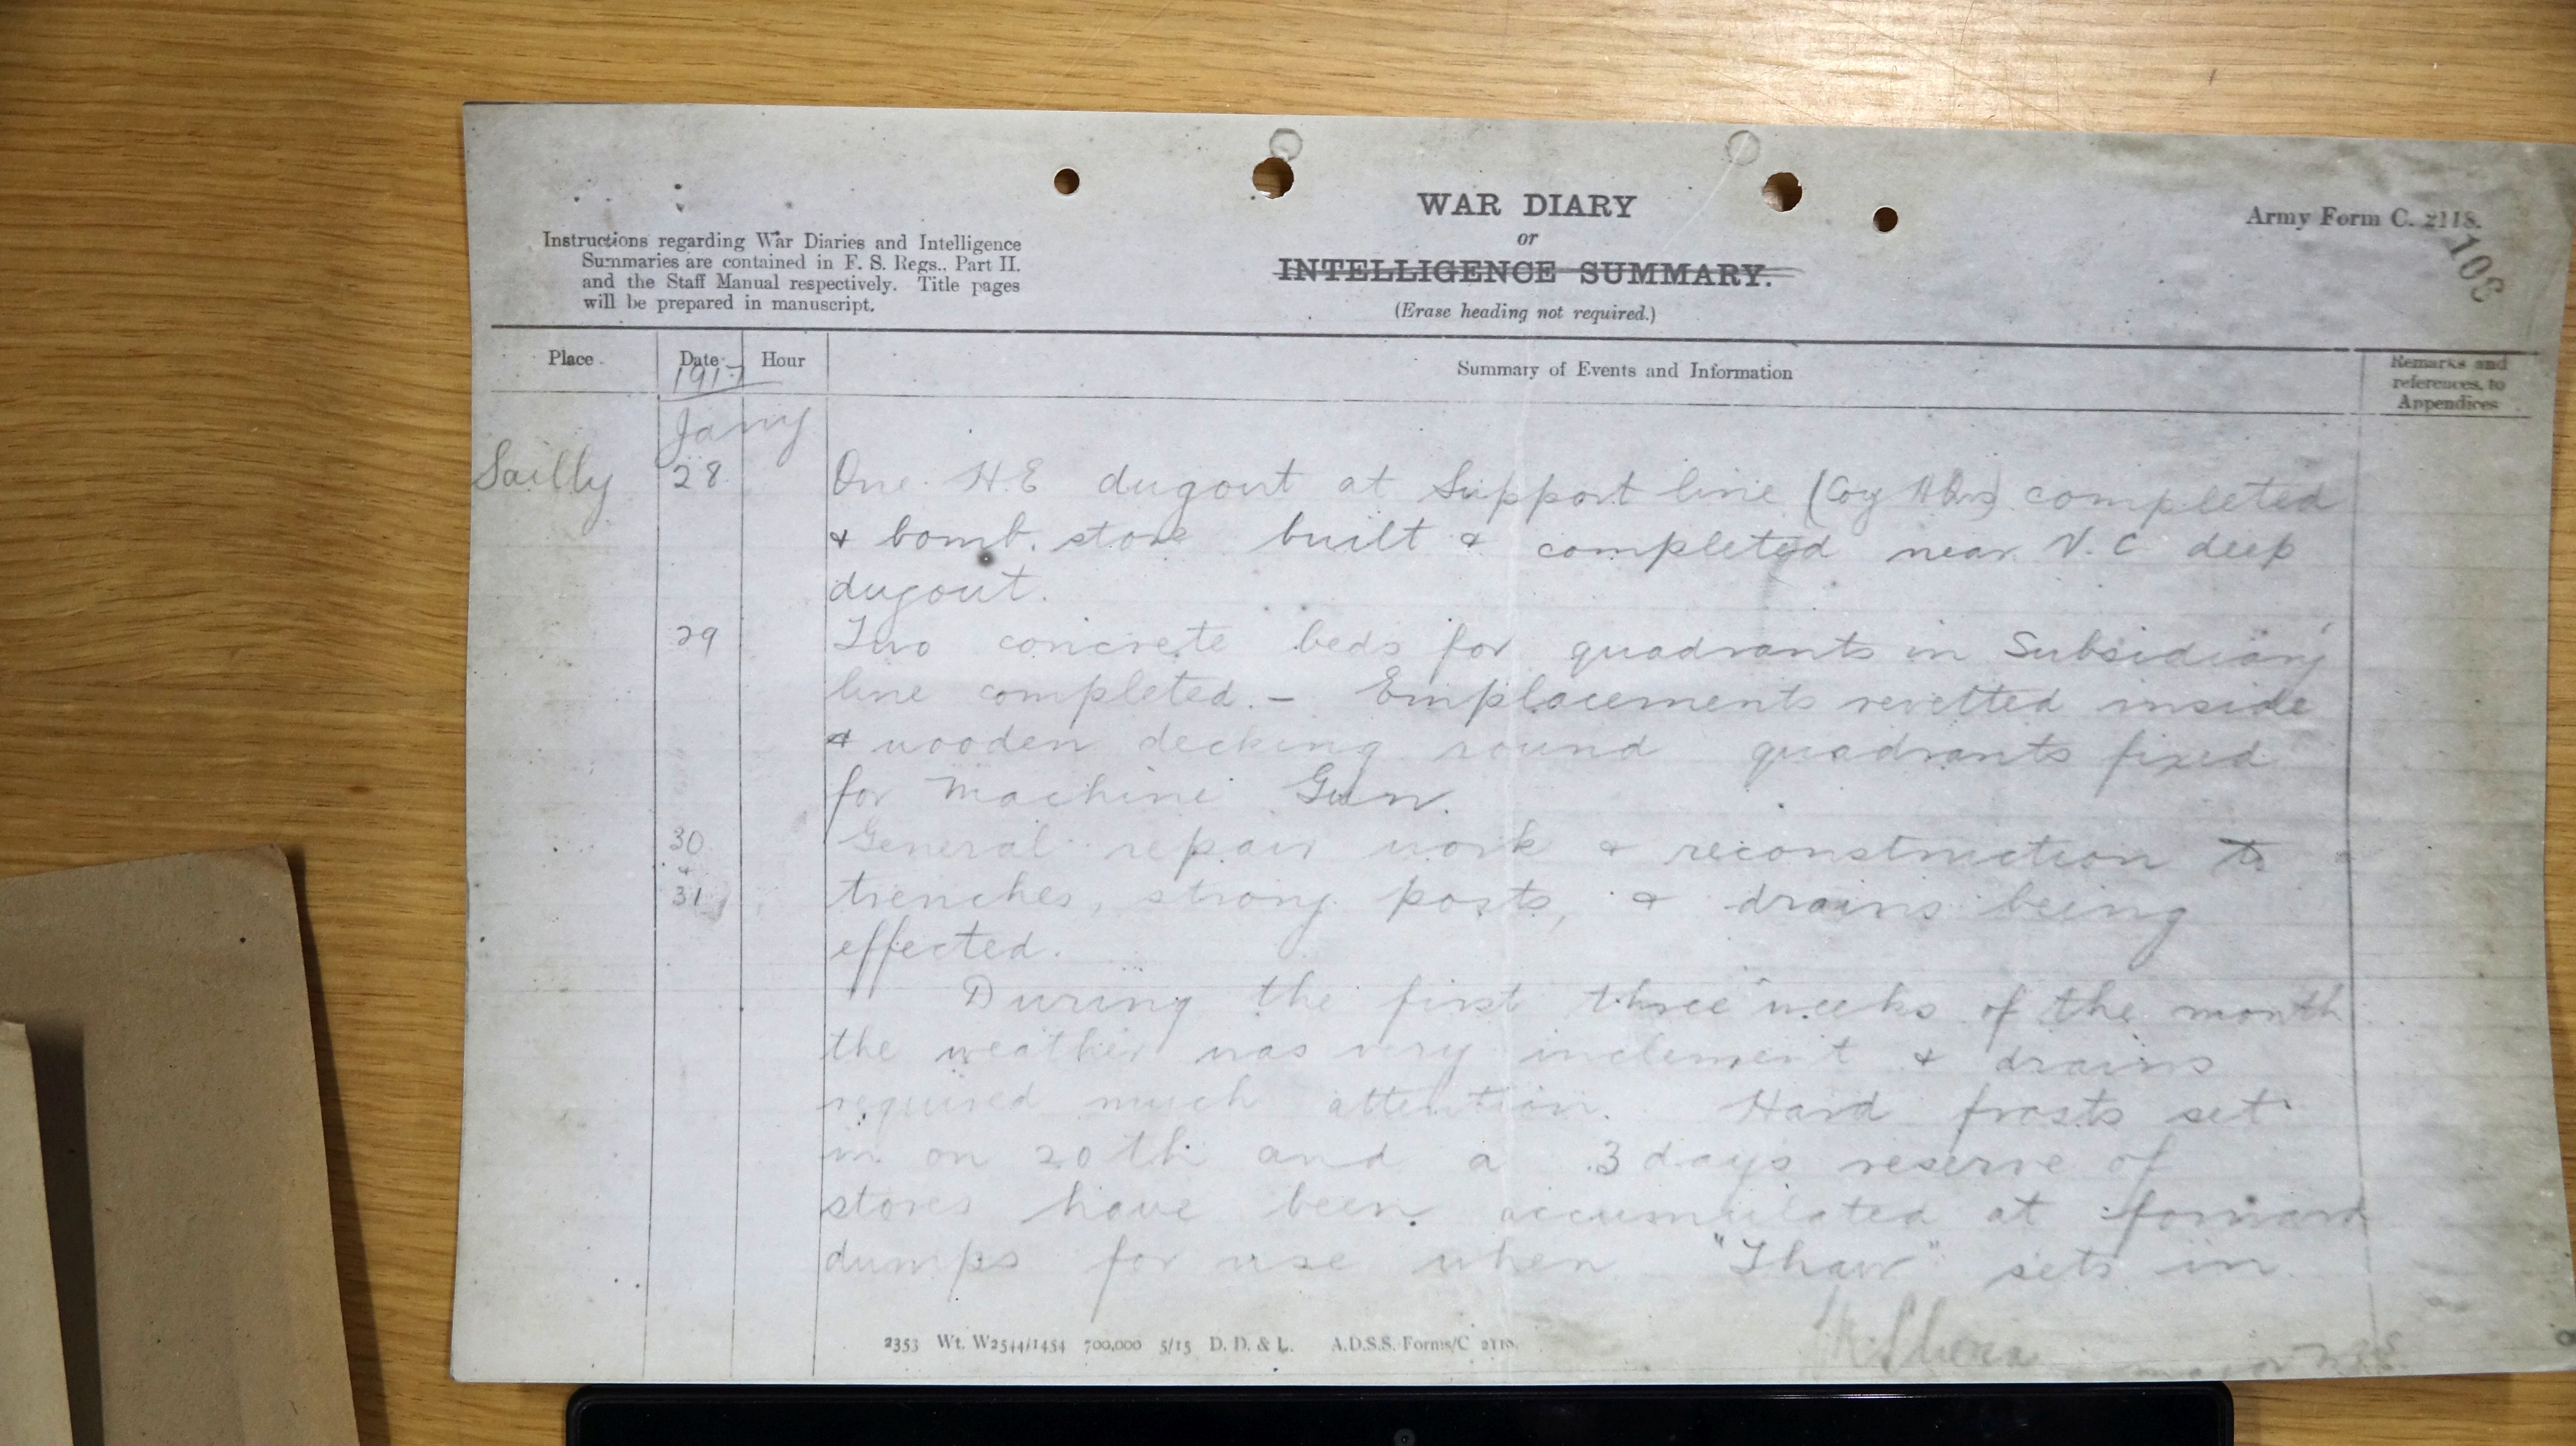 WAR DIARY
or
INTELLIGENCE SUMMARY.
(Erase heading not required.)
Army Form C. 2118.
Instructions regarding War Diaries and Intelligence
Summaries are contained in F. S. Regs., Part II.
and the Staff Manual respectively. Title pages
will be prepared in manuscript.
Place Date Hour Summary of Events and Information Remarks and references, to Appendices
1917
Jany
Sailly 28 One H.E dugout at Support line (Coy HQrs) completed
& bomb. store built & completed near V.C deep
dugout.
29 Two concrete beds for quadrants in Subsidiary
line completed. - Emplacements revetted inside
& wooden decking round quadrants fixed
for Machine Gun.
30 General repair work & reconstruction to
&
31 trenches, strong posts, & drains being
effected.
During the first three weeks of the month
the weather was very inclement & drains
required much attention. Hard frosts set
in on 20th and a 3 days reserve of
stores have been accumulated at forward
dumps for use when "Thaw" sets in
2353 Wt. W2544/1454 700,000 5/15 D. D. & L. A.D.S.S. Forms/C 2118.